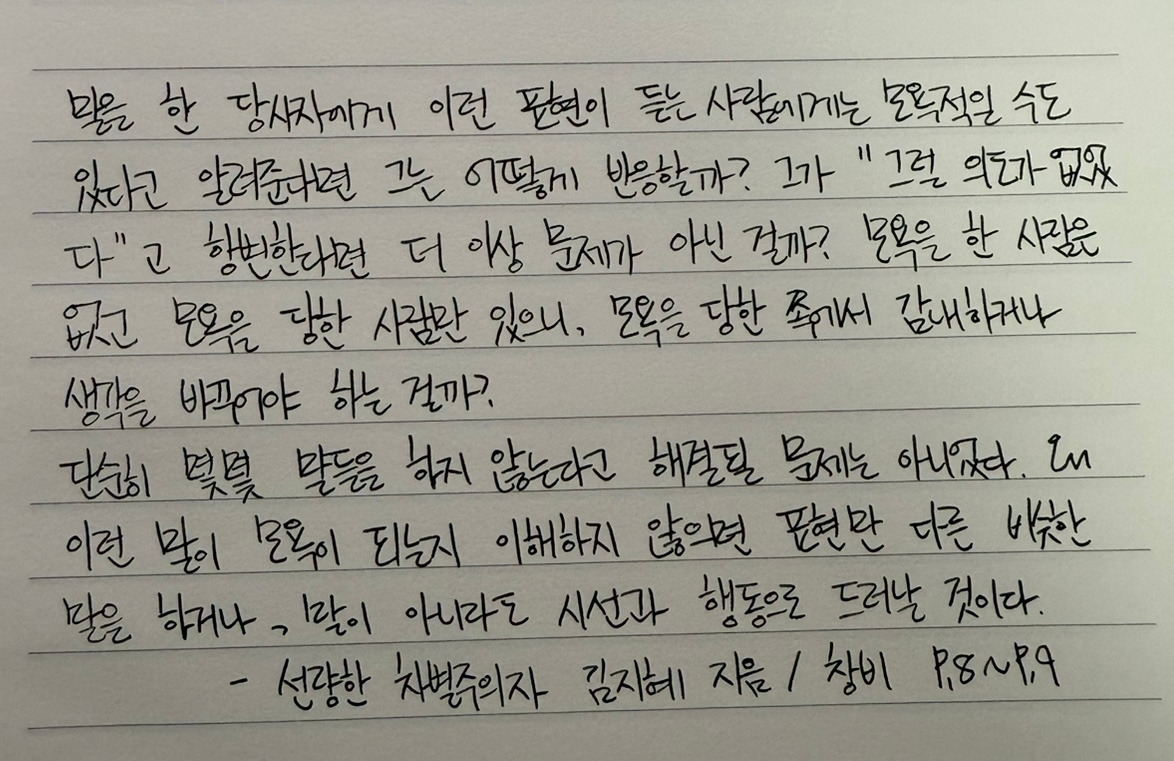 말을 한 당사자에게 이런 표현이 듣는 사람에게는 모욕적일 수도
있다고 알려준다면 그는 어떻게 반응할까? 그가 "그럴 의도가 없었
다"고 항변한다면 더 이상 문제가 아닌 걸까? 모욕을 한 사람은
없고 모욕을 당한 사람만 있으니, 모욕을 당한 쪽에서 감내하거나
생각을 바꾸어야 하는 걸까?
단순히 몇몇 말들을 하지 않는다고 해결될 문제는 아니었다. 왜
이런 말이 모욕이 되는지 이해하지 않으면 표현만 다른 비슷한
말을 하거나, 말이 아니라도 시선과 행동으로 드러날 것이다.
- 선량한 차별주의자 김지혜 지음 / 창비 P.8~P.9